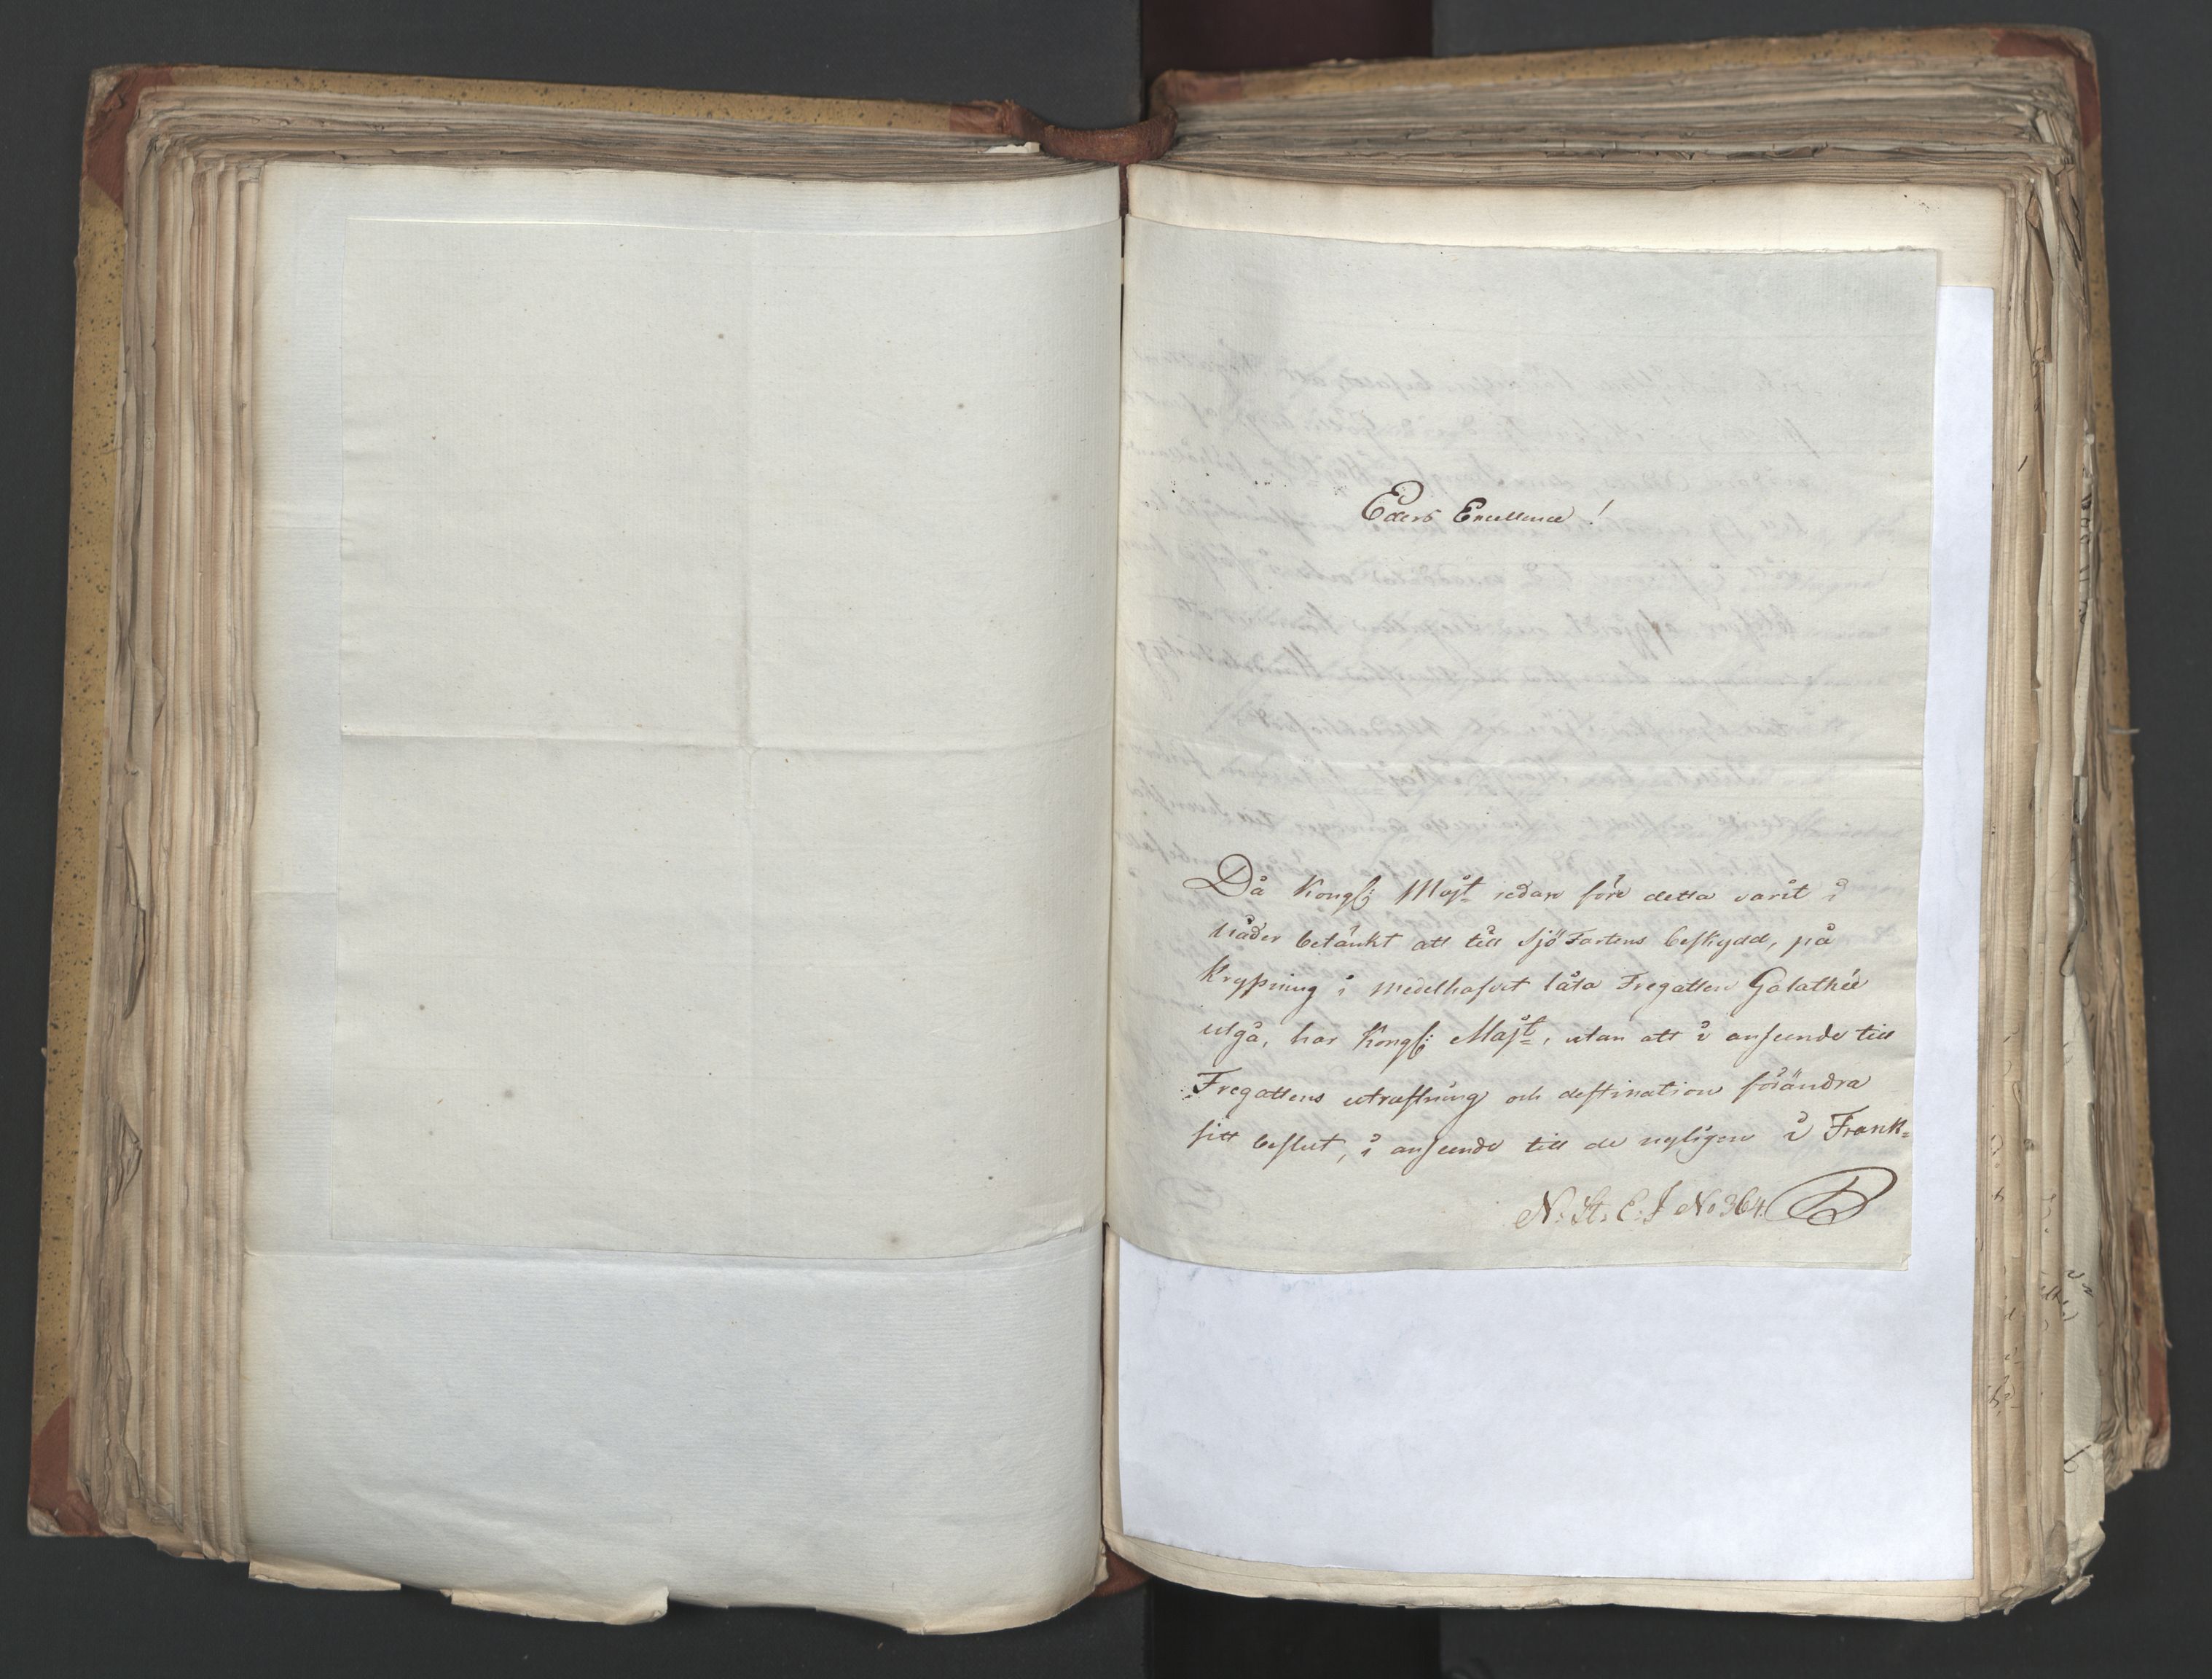 Eders Excellence!
Då Kongl: Majt redan före detta varit i
nåder betänkt att till SjöFartens beskydd, på
Kryssning i Medelhafvet låta Fregatten Galathée
utgå, har Kongl: Majt, utan att i anseende till
Fregattens utrustning och destination förändra
sitt beslut, i anseende till de nyligen i Frank=
N: St: E: J No 364.